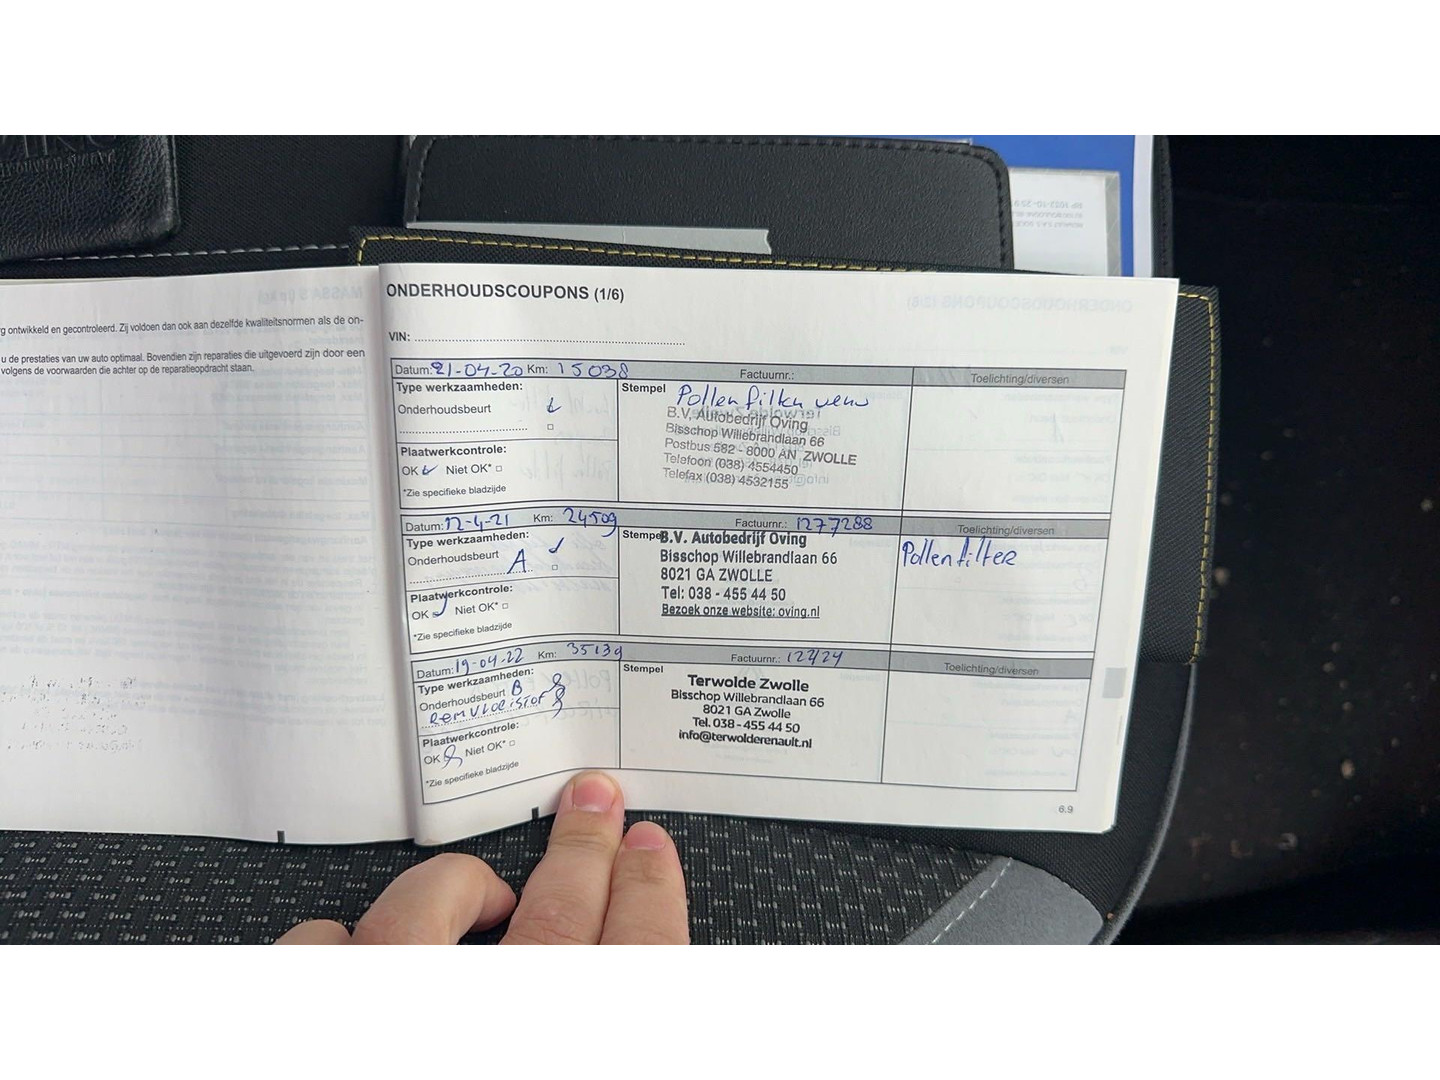 g ontwikkeld en gecontroleerd. Zij voldoen dan ook aan dezelfde kwaliteitsnormen als de on-
u de prestaties van uw auto optimaal. Bovendien zijn reparaties die uitgevoerd zijn door een
volgens de voorwaarden die achter op de reparatieopdracht staan.
ONDERHOUDSCOUPONS (1/6)
VIN:
Datum: 21-04-20 Km: 15038 Factuurnr.: Toelichting/diversen
Type werkzaamheden:
Onderhoudsbeurt
Plaatwerkcontrole:
OK Niet OK*
*Zie specifieke bladzijde
Stempel
Pollen filter
B.V. Autobedrijf Oving
Bisschop Willebrandlaan 66
Postbus 582 - 8000 AN ZWOLLE
Telefoon (038) 4554450
Telefax (038) 4532155
Datum: 12-4-21 Km: 24509 Factuurnr.: 1277288 Toelichting/diversen
Type werkzaamheden:
Onderhoudsbeurt
A
Plaatwerkcontrole:
OK Niet OK*
*Zie specifieke bladzijde
Stempel
B.V. Autobedrijf Oving
Bisschop Willebrandlaan 66
8021 GA ZWOLLE
Tel: 038 - 455 44 50
Bezoek onze website: oving.nl
Pollenfilter
Datum: 19-04-22 Km: 35139 Factuurnr.: Toelichting/diversen
Type werkzaamheden:
Onderhoudsbeurt B
Plaatwerkcontrole:
OK Niet OK*
*Zie specifieke bladzijde
Stempel
Terwolde Zwolle
Bisschop Willebrandlaan 66
8021 GA Zwolle
Tel. 038 - 455 44 50
info@terwolderenault.nl
6.9